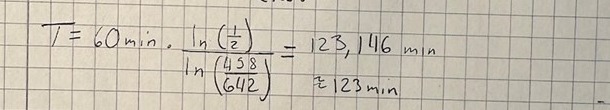 T = 60 min · ln(1/2) / ln(458/642) = 123,146 min
≈ 123 min